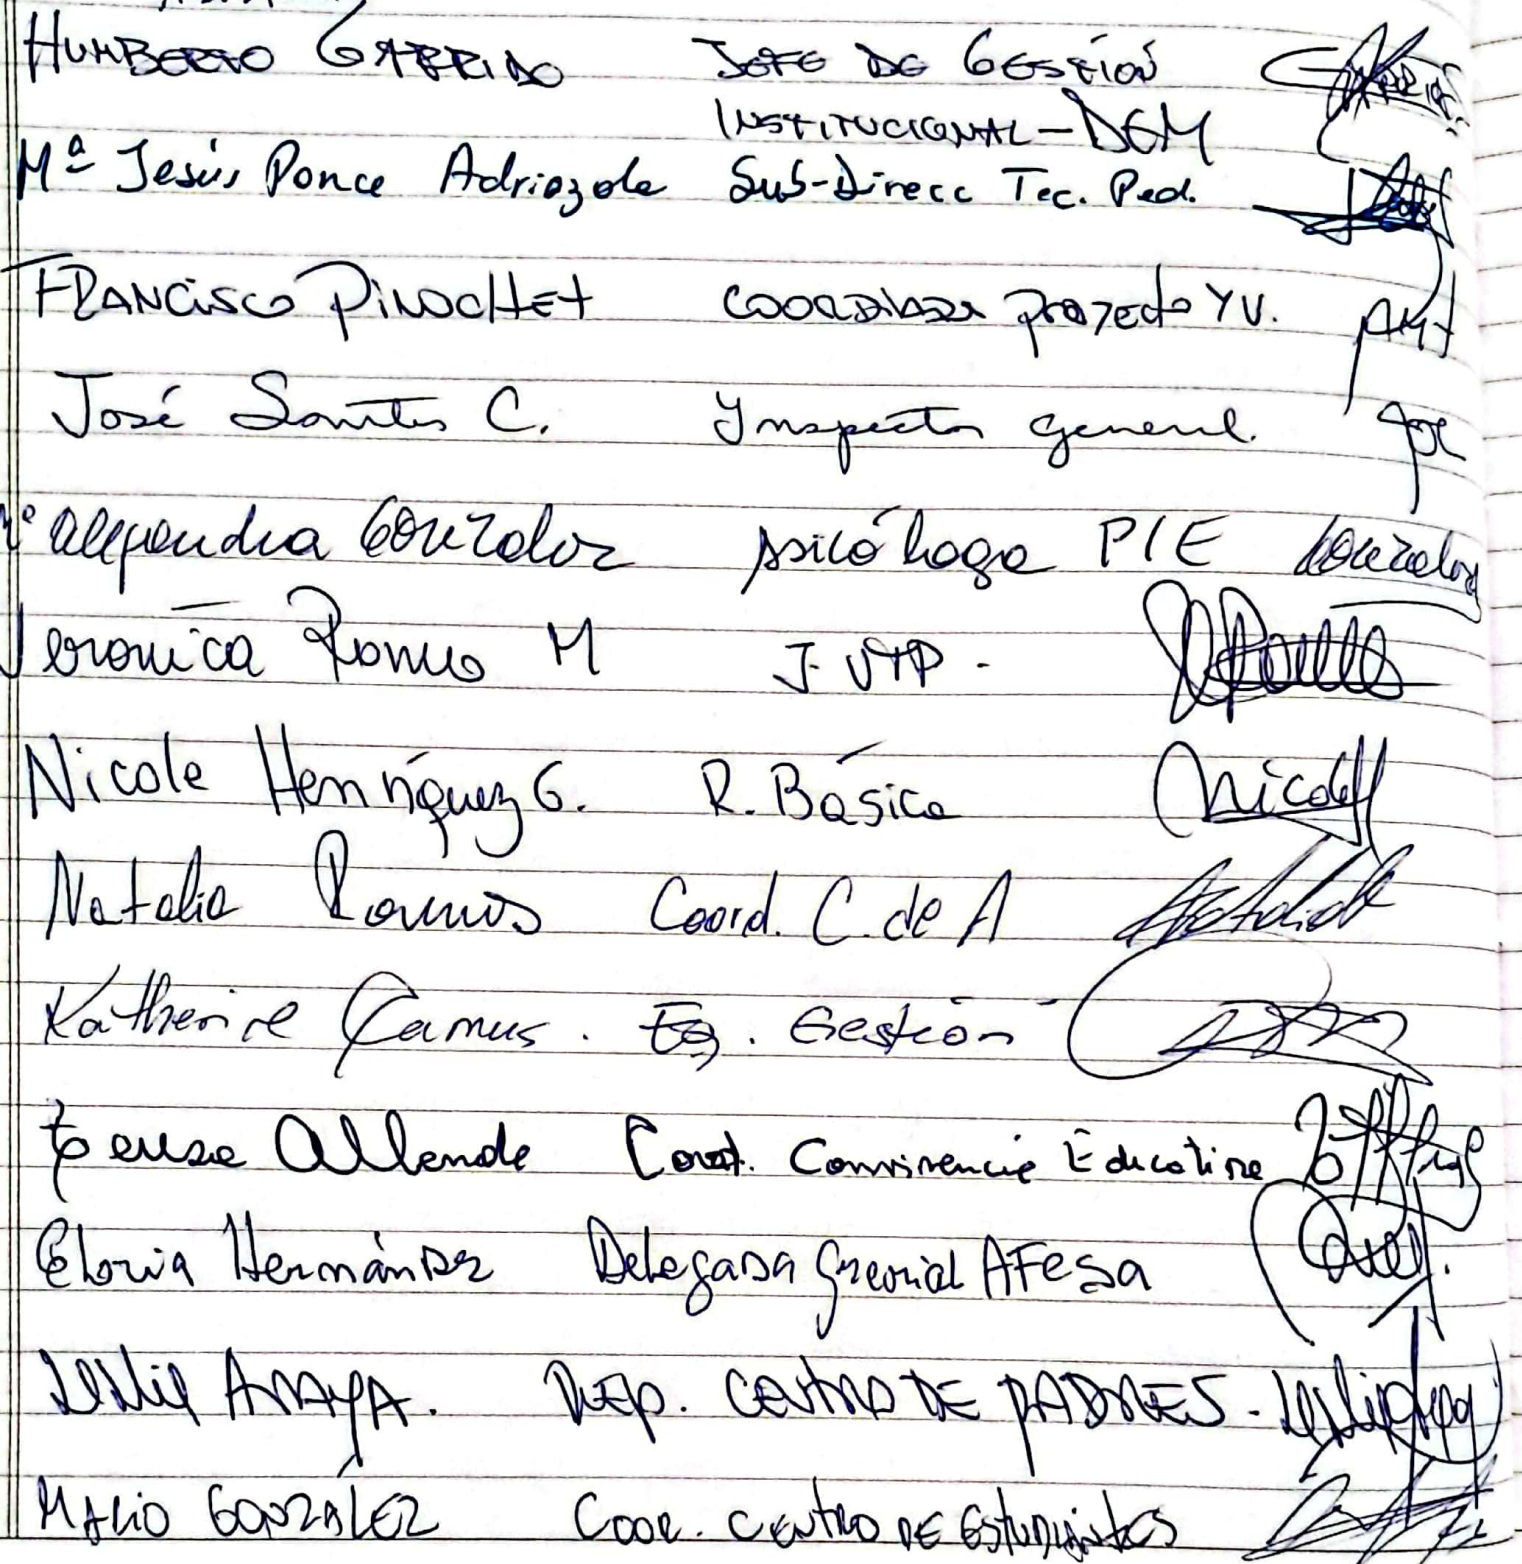 HUMBERTO GARRIDO JEFE DE GESTIÓN
INSTITUCIONAL - DEM
Mª Jesús Ponce Adriazola Sub-Direcc Tec. Ped.
FRANCISCO PINOCHET COORDINADOR proyecto YV.
José Santos C. Inspector general.
Mª Alejandra González psicóloga PIE González
Veronica Romo M J. UTP.
Nicole Henríquez G. R. Básica Nicole
Natalia Ramos Coord. C. de A
Katherine Camus. Eq. Gestión
Allende Coord. Convivencia Educativa
Gloria Hernández Delegada gremial AFESA
Leslie ARAYA. REP. CENTRO DE PADRES. Leslie Araya
MARIO GONZÁLEZ COOR. CENTRO DE ESTUDIANTES